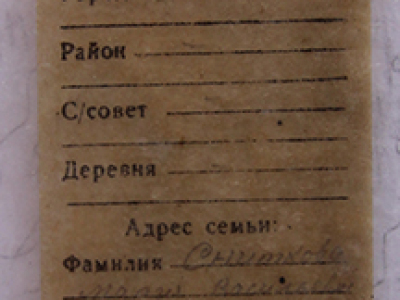 Район
С/совет
Деревня
Адрес семьи:
Фамилия
Мария Васильевна